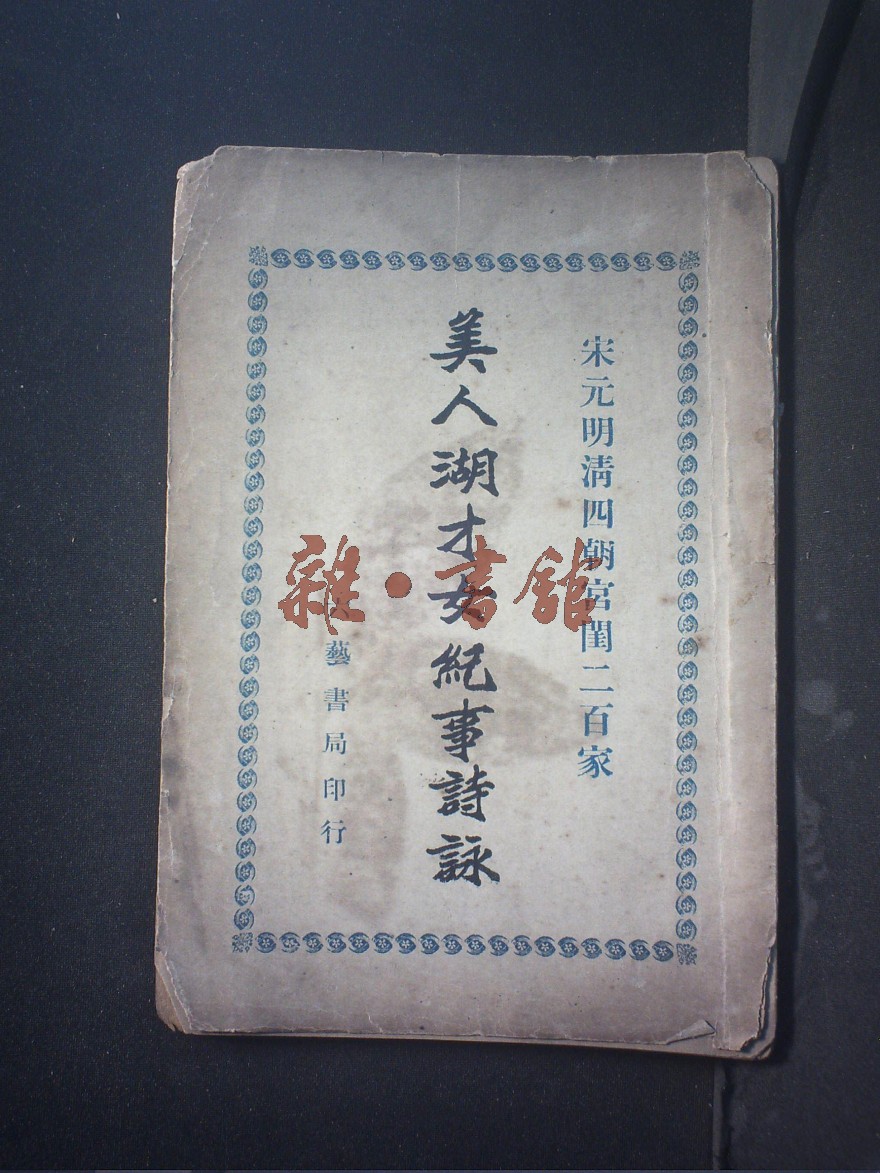 宋元明清四朝宮閨二百家
美人湖才女紀事詩詠
藝書局印行
雜·書館